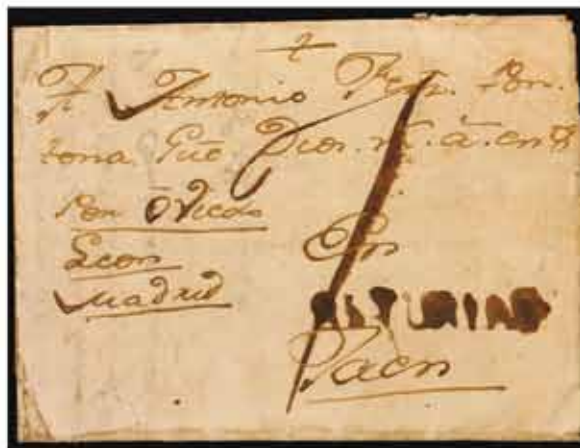 A Antonio Fern. Por-
tona. Gue Dios. m. a. en
Por Oviedo
Leon
Madrid
En
ASTURIAS
Jaen